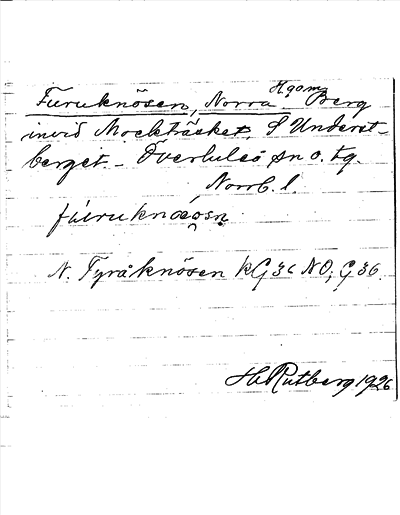 Hgom
Furuknösen, Norra Berg
invid Mockträsket, S Underst-
berget. Överluleå sn o. tg.
Norrb. l.
fúruknœ̀osn
N. Fyråknösen kG36 NO; G36.
H Rutberg 1926